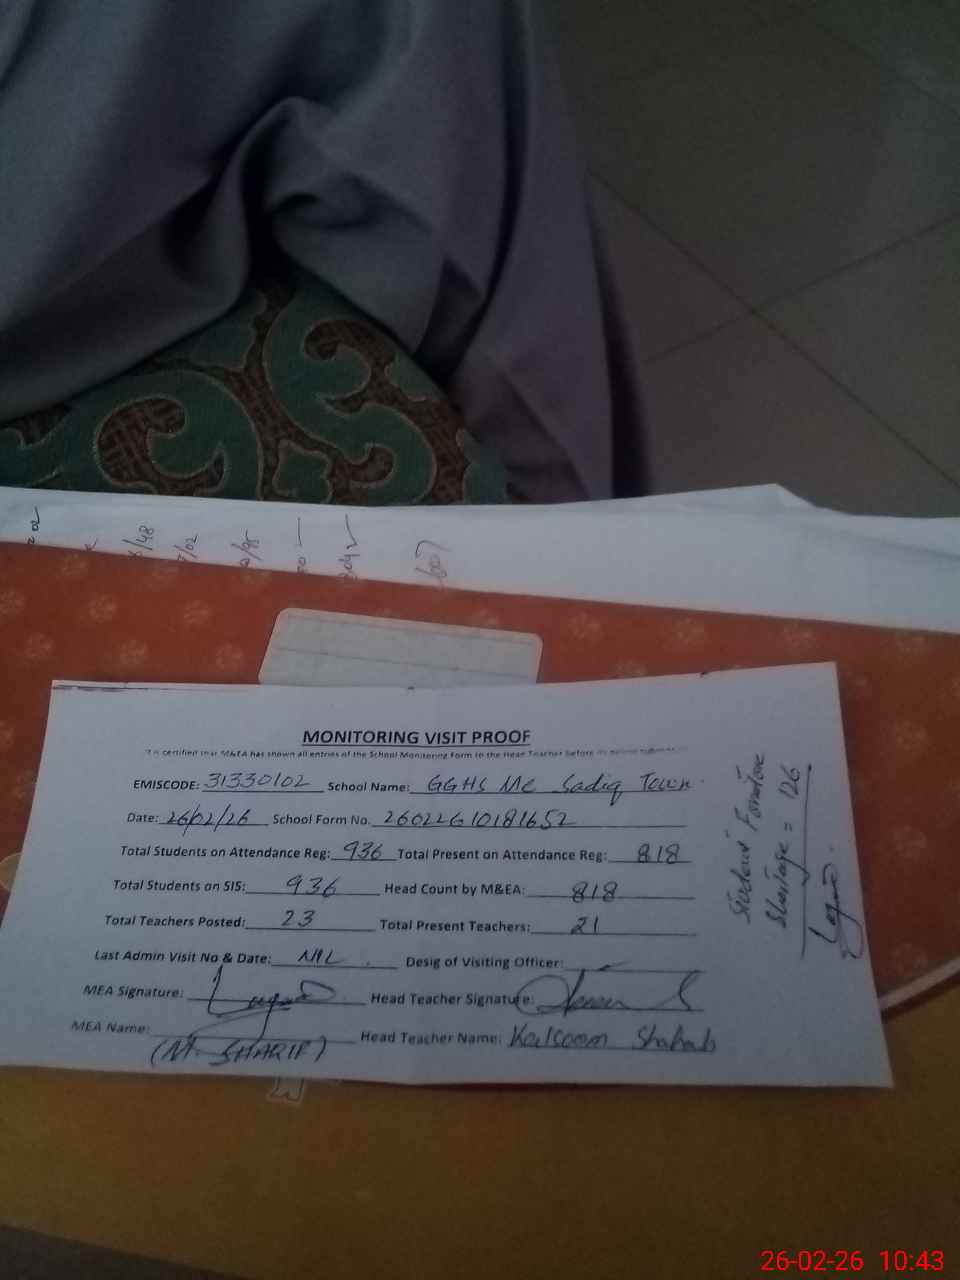 MONITORING VISIT PROOF
It is certified that M&EA has shown all entries of the School Monitoring Form to the Head Teacher before its
EMISCODE: 31330102 School Name: GGHS MC Sadiq Town
Date: 26/02/26 School Form No. 26022G10181652
Total Students on Attendance Reg: 936 Total Present on Attendance Reg: 818
Total Students on SIS: 936 Head Count by M&EA: 818
Total Teachers Posted: 23 Total Present Teachers: 21
Last Admin Visit No & Date: NIL Desig of Visiting Officer:
MEA Signature: Head Teacher Signature:
MEA Name: (M. SHARIF) Head Teacher Name: Kalsoom Shahab
Student
Shortage = 126
26-02-26 10:43